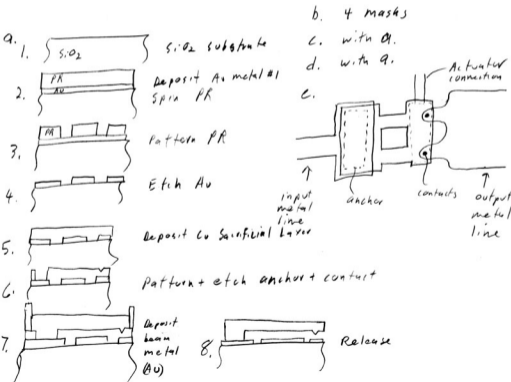 a.
1. SiO2 SiO2 substrate
2. PR Au Deposit Au metal #1
Spin PR
3. PR Pattern PR
4. Etch Au
5. Deposit Cu Sacrificial Layer
6. Pattern + etch anchor + contact
7. Deposit
beam
metal
(Au)
8. Release
b. 4 masks
c. with a.
d. with a.
e.
Actuator
connection
input
metal
line
anchor
contacts
output
metal
line